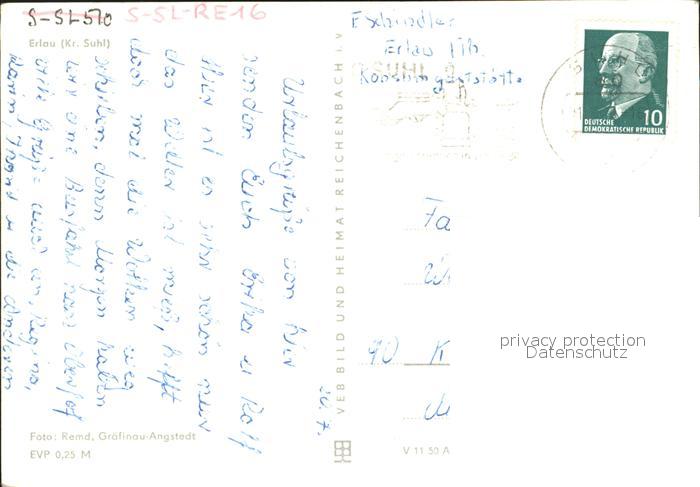 S-SL570
S-SL-RE16
Erlau (Kr. Suhl)
Urlaubsgrüße von hier
senden Euch Erika u Rolf
Hier ist es sehr schön nur
das Wetter ist mies, hofft
doch mal die Wolken weg
schieben, denn Morgen haben
wir eine Busfahrt nach Oberhof
Viele Grüße auch an, Regina,
u die Anderen
20.7.
Foto: Remd, Gräfinau-Angstedt
EVP 0,25 M
VEB BILD UND HEIMAT REICHENBACH I.V
V 11 50 A
E Schindler
Erlau Th.
SUHL
10
DEUTSCHE
DEMOKRATISCHE REPUBLIK
Fa
90 K
privacy protection
Datenschutz